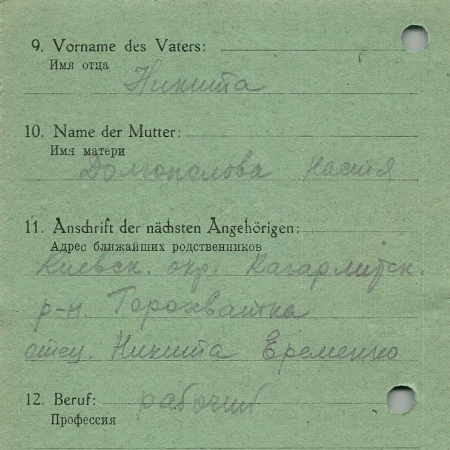 9. Vorname des Vaters:
Имя отца
Никита
10. Name der Mutter:
Имя матери
Долгополова Настя
11. Anschrift der nächsten Angehörigen:
Адрес ближайших родственников
Киевск. окр. Кагарлитск.
р-н. Горохватка
отец. Никита Еременко
12. Beruf: рабочий
Профессия